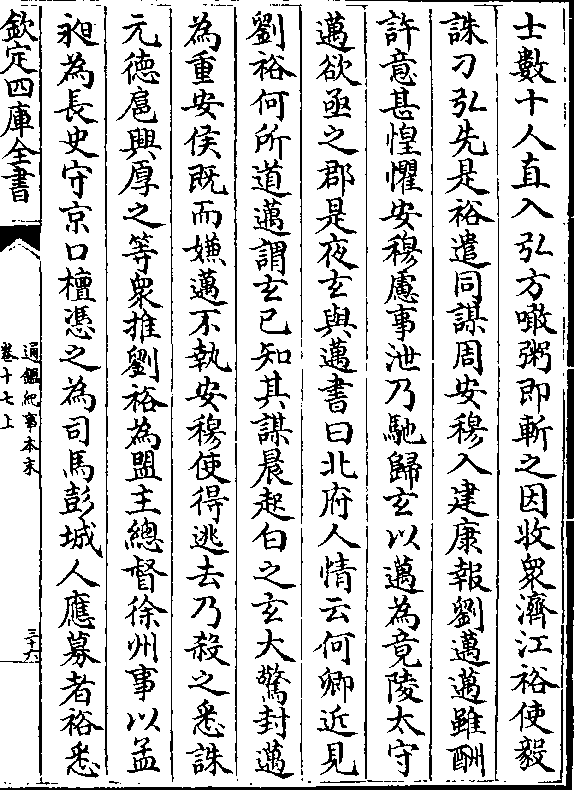 士數十人直入弘方噉粥即斬之因收衆濟江裕使毅
誅刁弘先是裕遣同謀周安穆入建康報劉邁邁雖酬
許意甚惶懼安穆慮事泄乃馳歸玄以邁為竟陵太守
邁欲亟之郡是夜玄與邁書曰北府人情云何卿近見
劉裕何所道邁謂玄已知其謀晨起白之玄大驚封邁
為重安侯既而嫌邁不執安穆使得逃去乃殺之悉誅
元德扈興厚之等衆推劉裕為盟主總督徐州事以孟
昶為長史守京口檀憑之為司馬彭城人應募者裕悉
欽定四庫全書
通鑑紀事本末
卷十七上
三十六